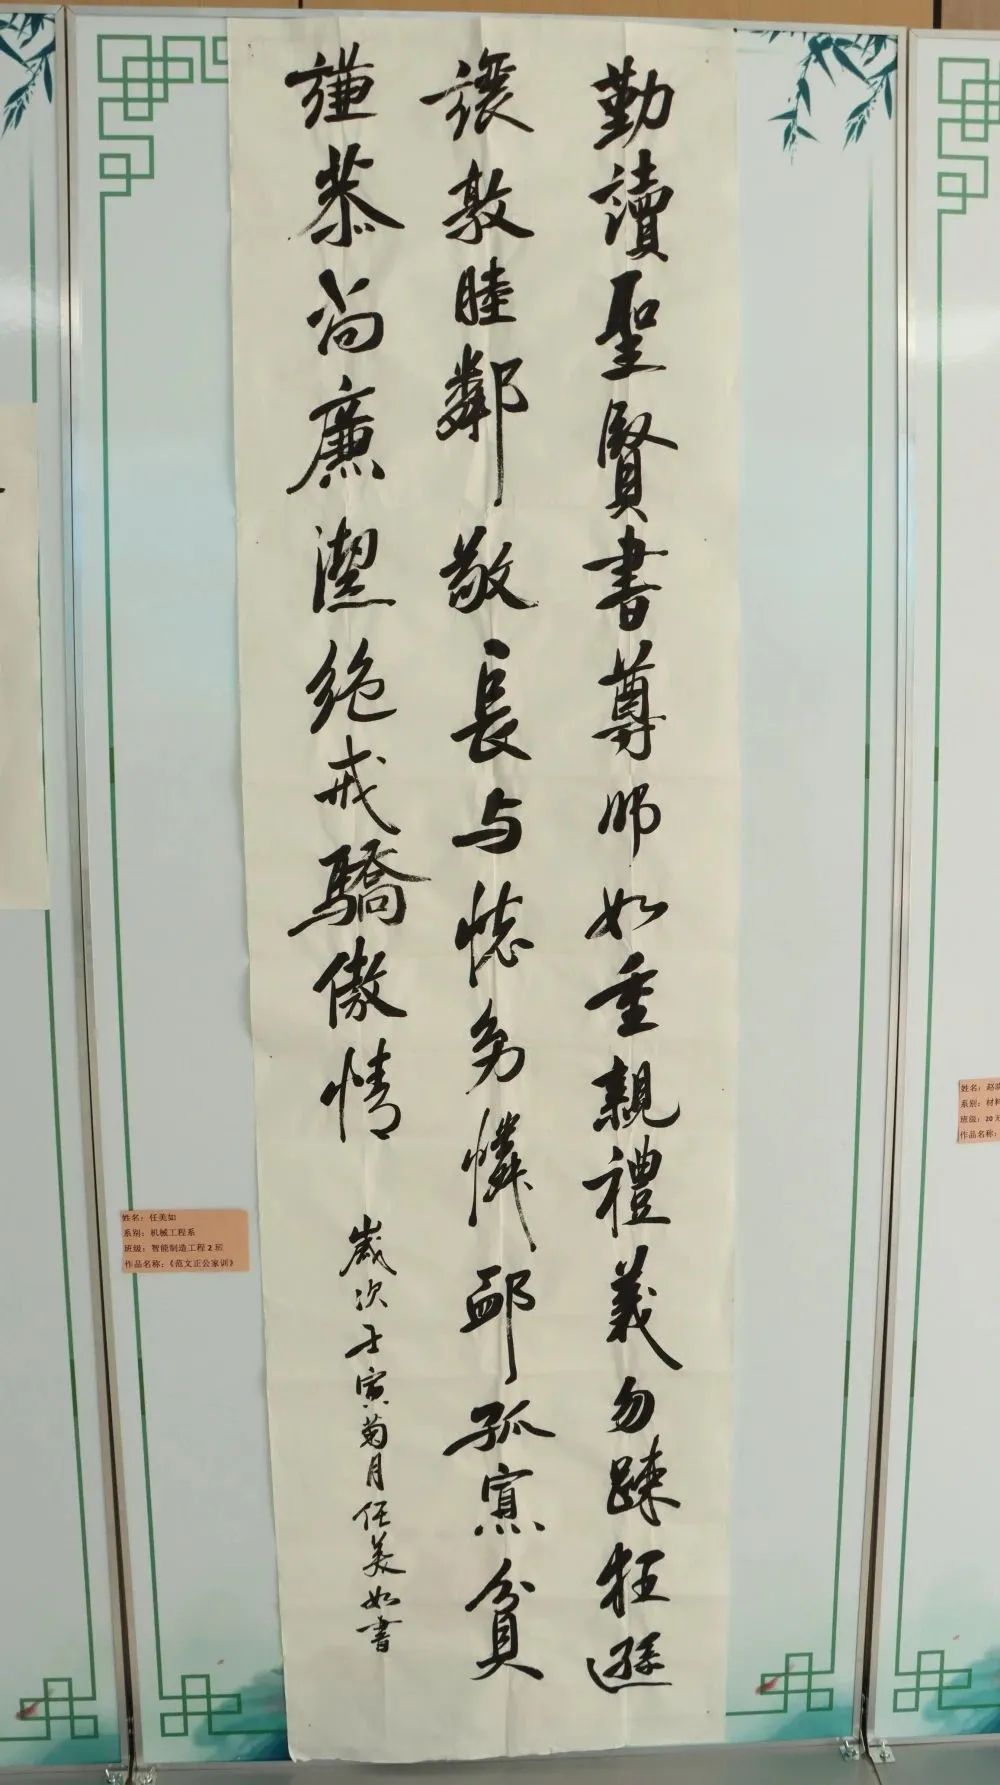 勤讀聖賢書尊師如重親禮義勿踈狂遜
讓敦睦鄰敬長与懷幼憐卹孤寡貧
謙恭尚廉潔絕戒驕傲情
歲次壬寅菊月任美如書
姓名：任美如
系别：机械工程系
班级：智能制造工程2班
作品名称：《范文正公家训》
姓名：赵
系别：材料
班级：20无
作品名称：